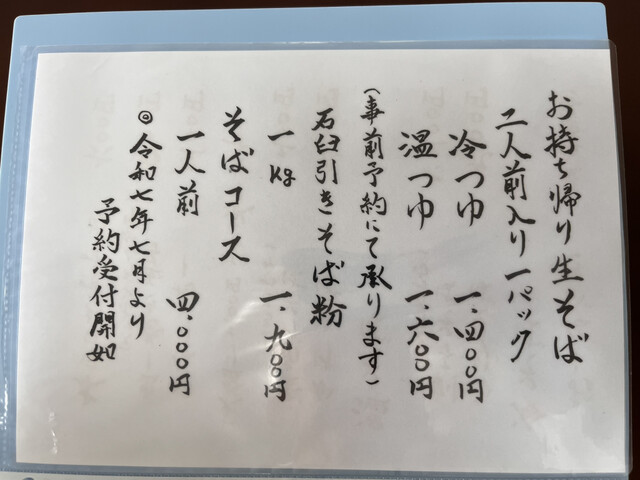 お持ち帰り生そば
二人前入り一パック
冷つゆ 一、四〇〇円
温つゆ 一、六〇〇円
(事前予約にて承ります)
石臼引きそば粉
一kg 一、九〇〇円
そばコース
一人前 四、〇〇〇円
◎令和七年七月より
予約受付開始